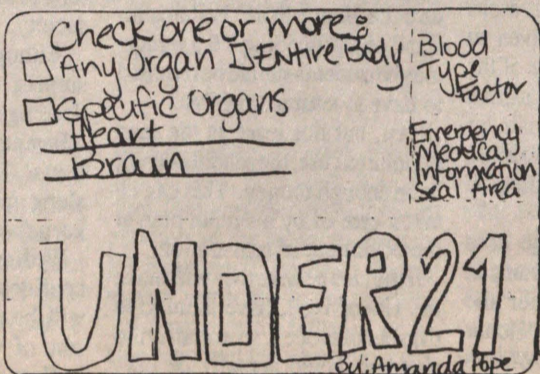 Check one or more:
Any Organ Entire Body
Specific Organs
Heart
Brain
Blood
Type
Factor
Emergency
Medical
Information
Seal Area
UNDER 21
By: Amanda Pope